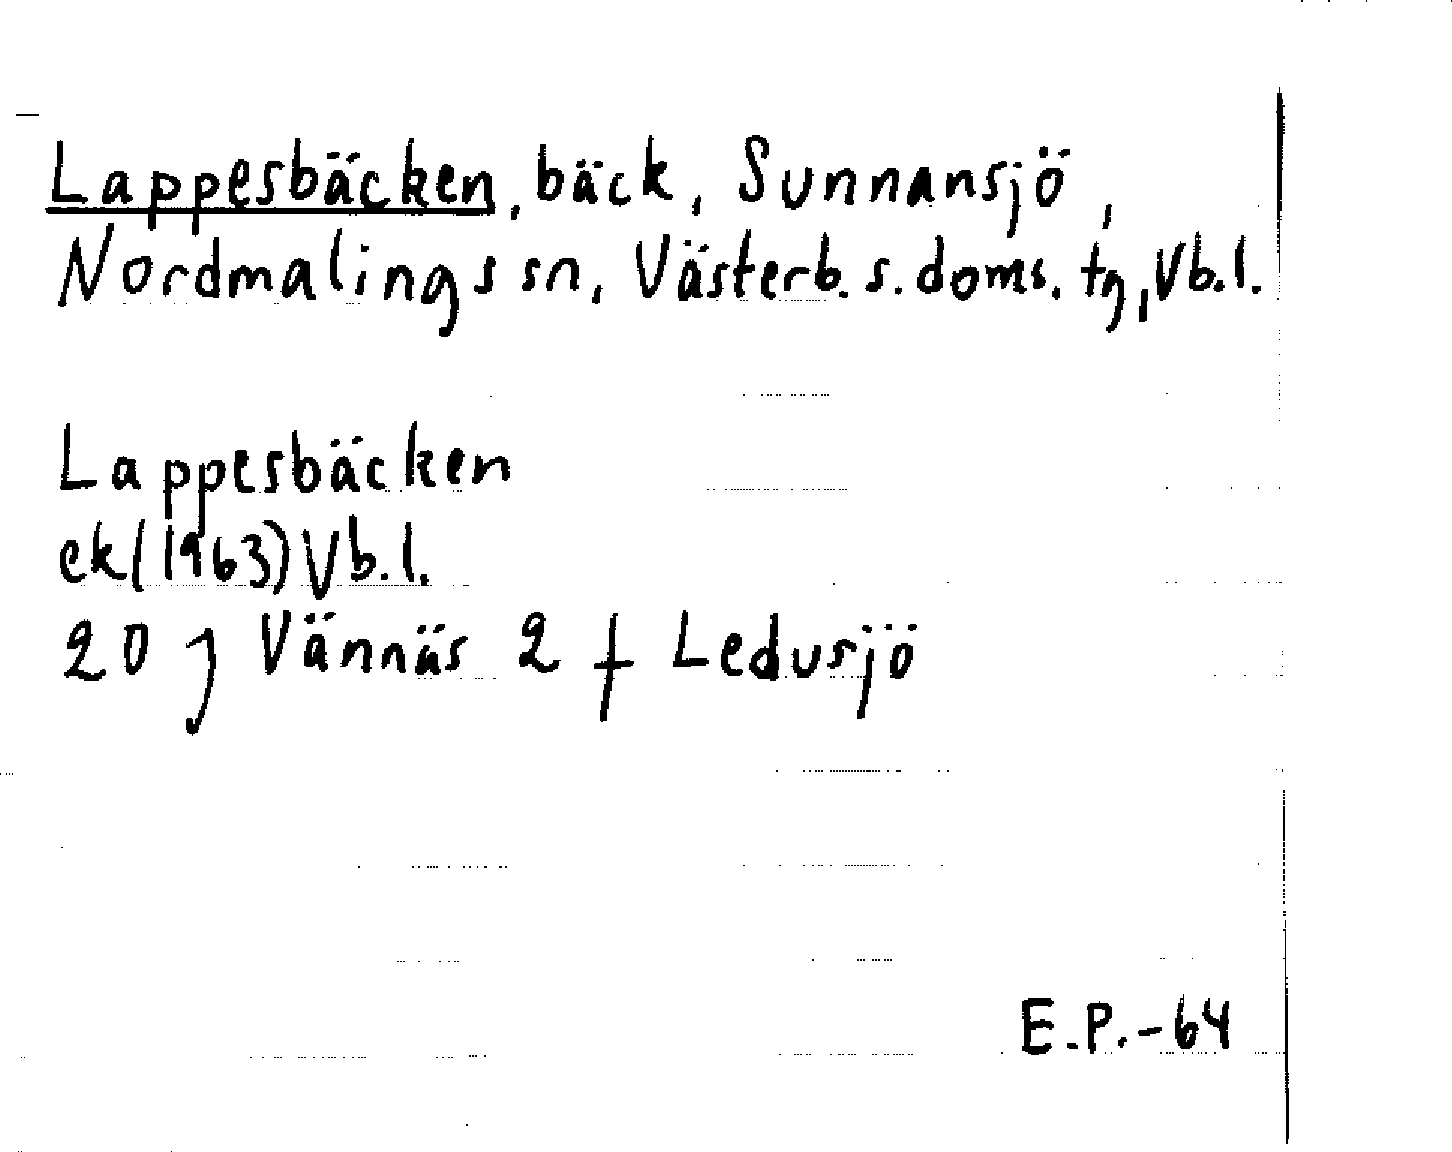 Lappesbäcken, bäck, Sunnansjö,
Nordmalings sn, Västerb. s. doms. tg, Vb.l.
Lappesbäcken
ek(1963)Vb.l.
20 J Vännäs 2 f Ledusjö
E.P.-64